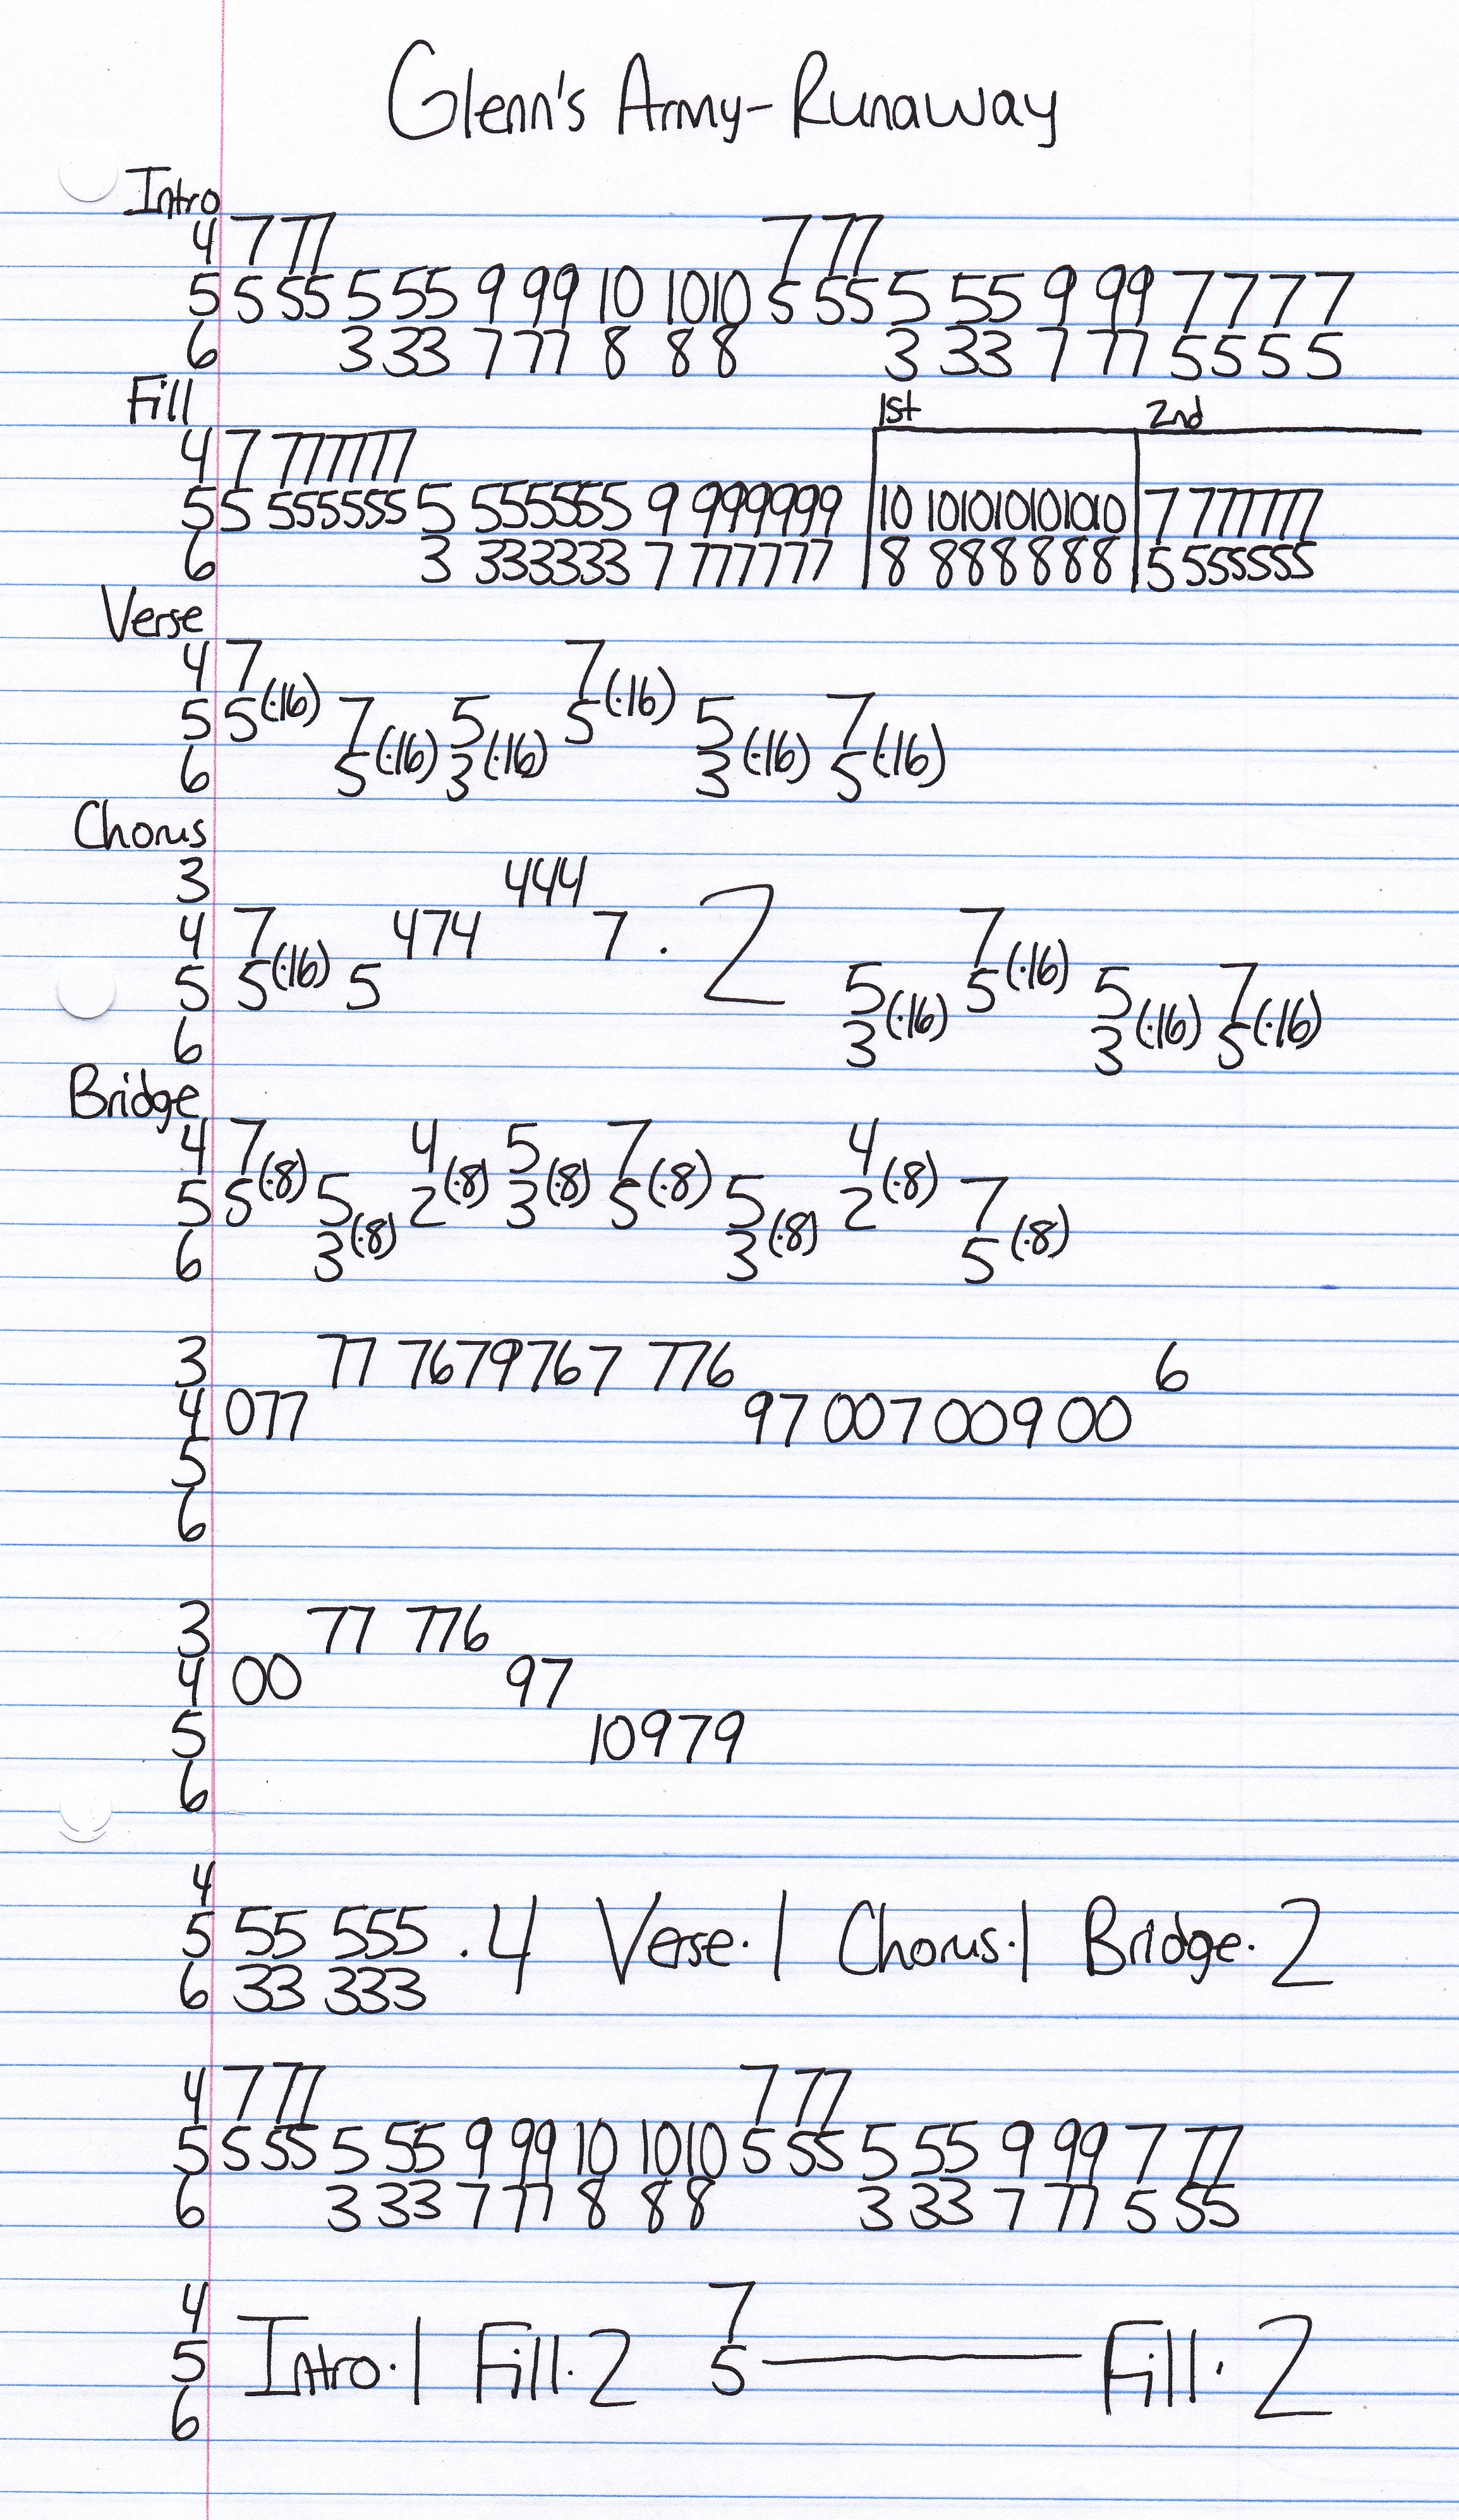 Glenn's Army-Runaway
Intro
4 7 77 7 77
5 5 55 5 55 9 99 10 1010 5 55 5 55 9 99 7 7 7 7
6 3 33 7 77 8 8 8 3 33 7 77 5 5 5 5
Fill 1st 2nd
4 7 777777
5 5 555555 5 555555 9 999999 10 101010101010 7 777777
6 3 333333 7 777777 8 888888 5 555555
Verse
4 7 7
5 5(·16) 7 5 5(·16) 5 7
6 5(·16) 3(·16) 3(·16) 5(·16)
Chorus
3 444
4 7 474 7 · 2 7
5 5(·16) 5 5 5(·16) 5 7
6 3(·16) 3(·16) 5(·16)
Bridge
4 7 4 5 7 4
5 5(·8) 5 2(·8) 3(·8) 5(·8) 5 2(·8) 7
6 3(·8) 3(·8) 5(·8)
3 77 7679767 776 6
4 077 97 007 009 00
5
6
3 77 776
4 00 97
5 10979
6
4
5 55 555 ·4 Verse·1 Chorus·1 Bridge·2
6 33 333
4 7 77 7 77
5 5 55 5 55 9 99 10 1010 5 55 5 55 9 99 7 77
6 3 33 7 77 8 8 8 3 33 7 77 5 55
4 7
5 Intro·1 Fill·2 5 Fill·2
6